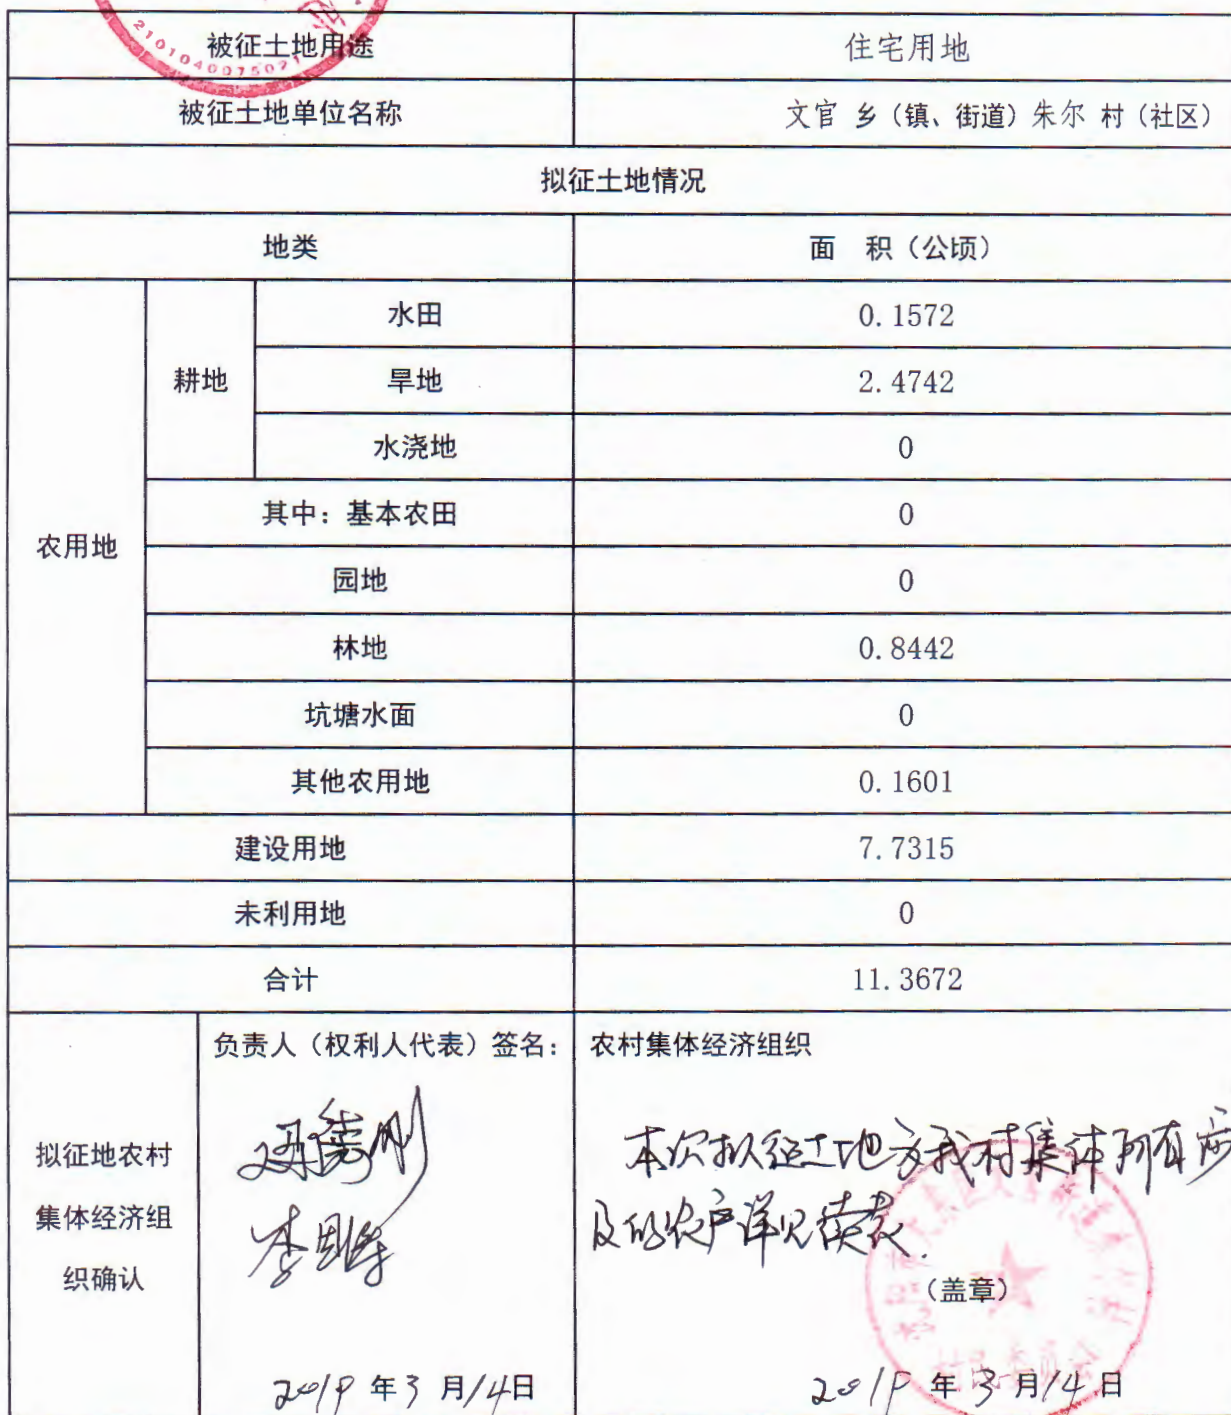 2101040075021
被征土地用途 住宅用地
被征土地单位名称 文官 乡（镇、街道）朱尔 村（社区）
拟征土地情况
地类 面 积（公顷）
农用地 耕地 水田 0.1572
旱地 2.4742
水浇地 0
其中：基本农田 0
园地 0
林地 0.8442
坑塘水面 0
其他农用地 0.1601
建设用地 7.7315
未利用地 0
合计 11.3672
拟征地农村
集体经济组
织确认
负责人（权利人代表）签名：
2019 年 3 月 14 日
农村集体经济组织
本次拟征土地为我村集体所有 涉
及的农户详见续表.
（盖章）
村民委员会
2019 年 3 月 14 日